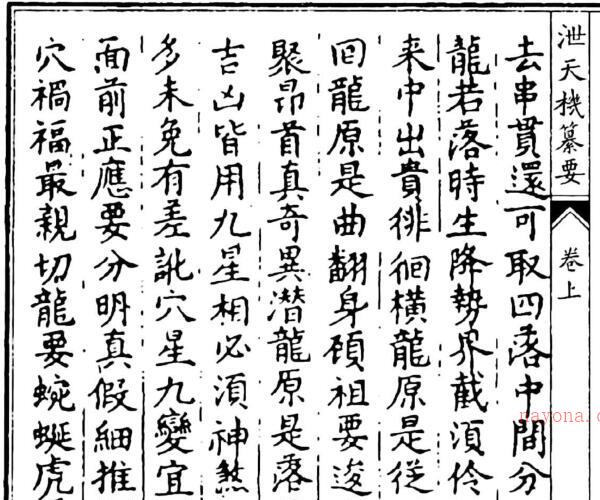 泄天機纂要
卷上
去串貫還可取四落中間分
龍若落時生降勢界截須伶
来中出貴徘徊橫龍原是從
回龍原是曲翻身碩祖要逡
聚昂首真奇異潛龍原是落
吉凶皆用九星相必須神煞
多未免有差訛穴星九變宜
面前正應要分明真假細推
穴禍福最親切龍要蜿蜒虎
nayona.c